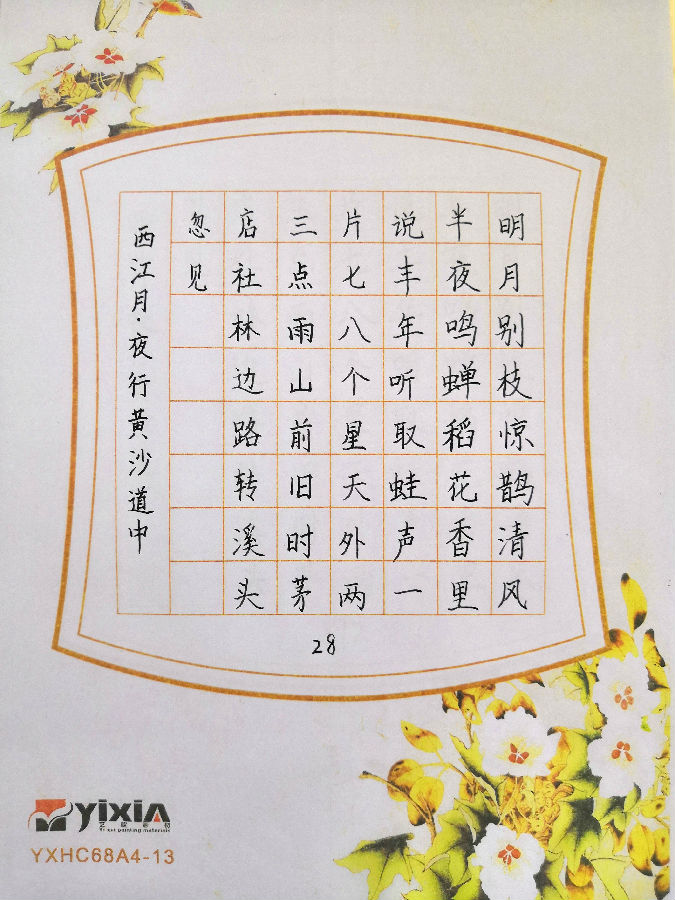 明月别枝惊鹊清风
半夜鸣蝉稻花香里
说丰年听取蛙声一
片七八个星天外两
三点雨山前旧时茅
店社林边路转溪头
忽见
西江月·夜行黄沙道中
28
yixin
Yi xin painting materials
YXHC68A4-13